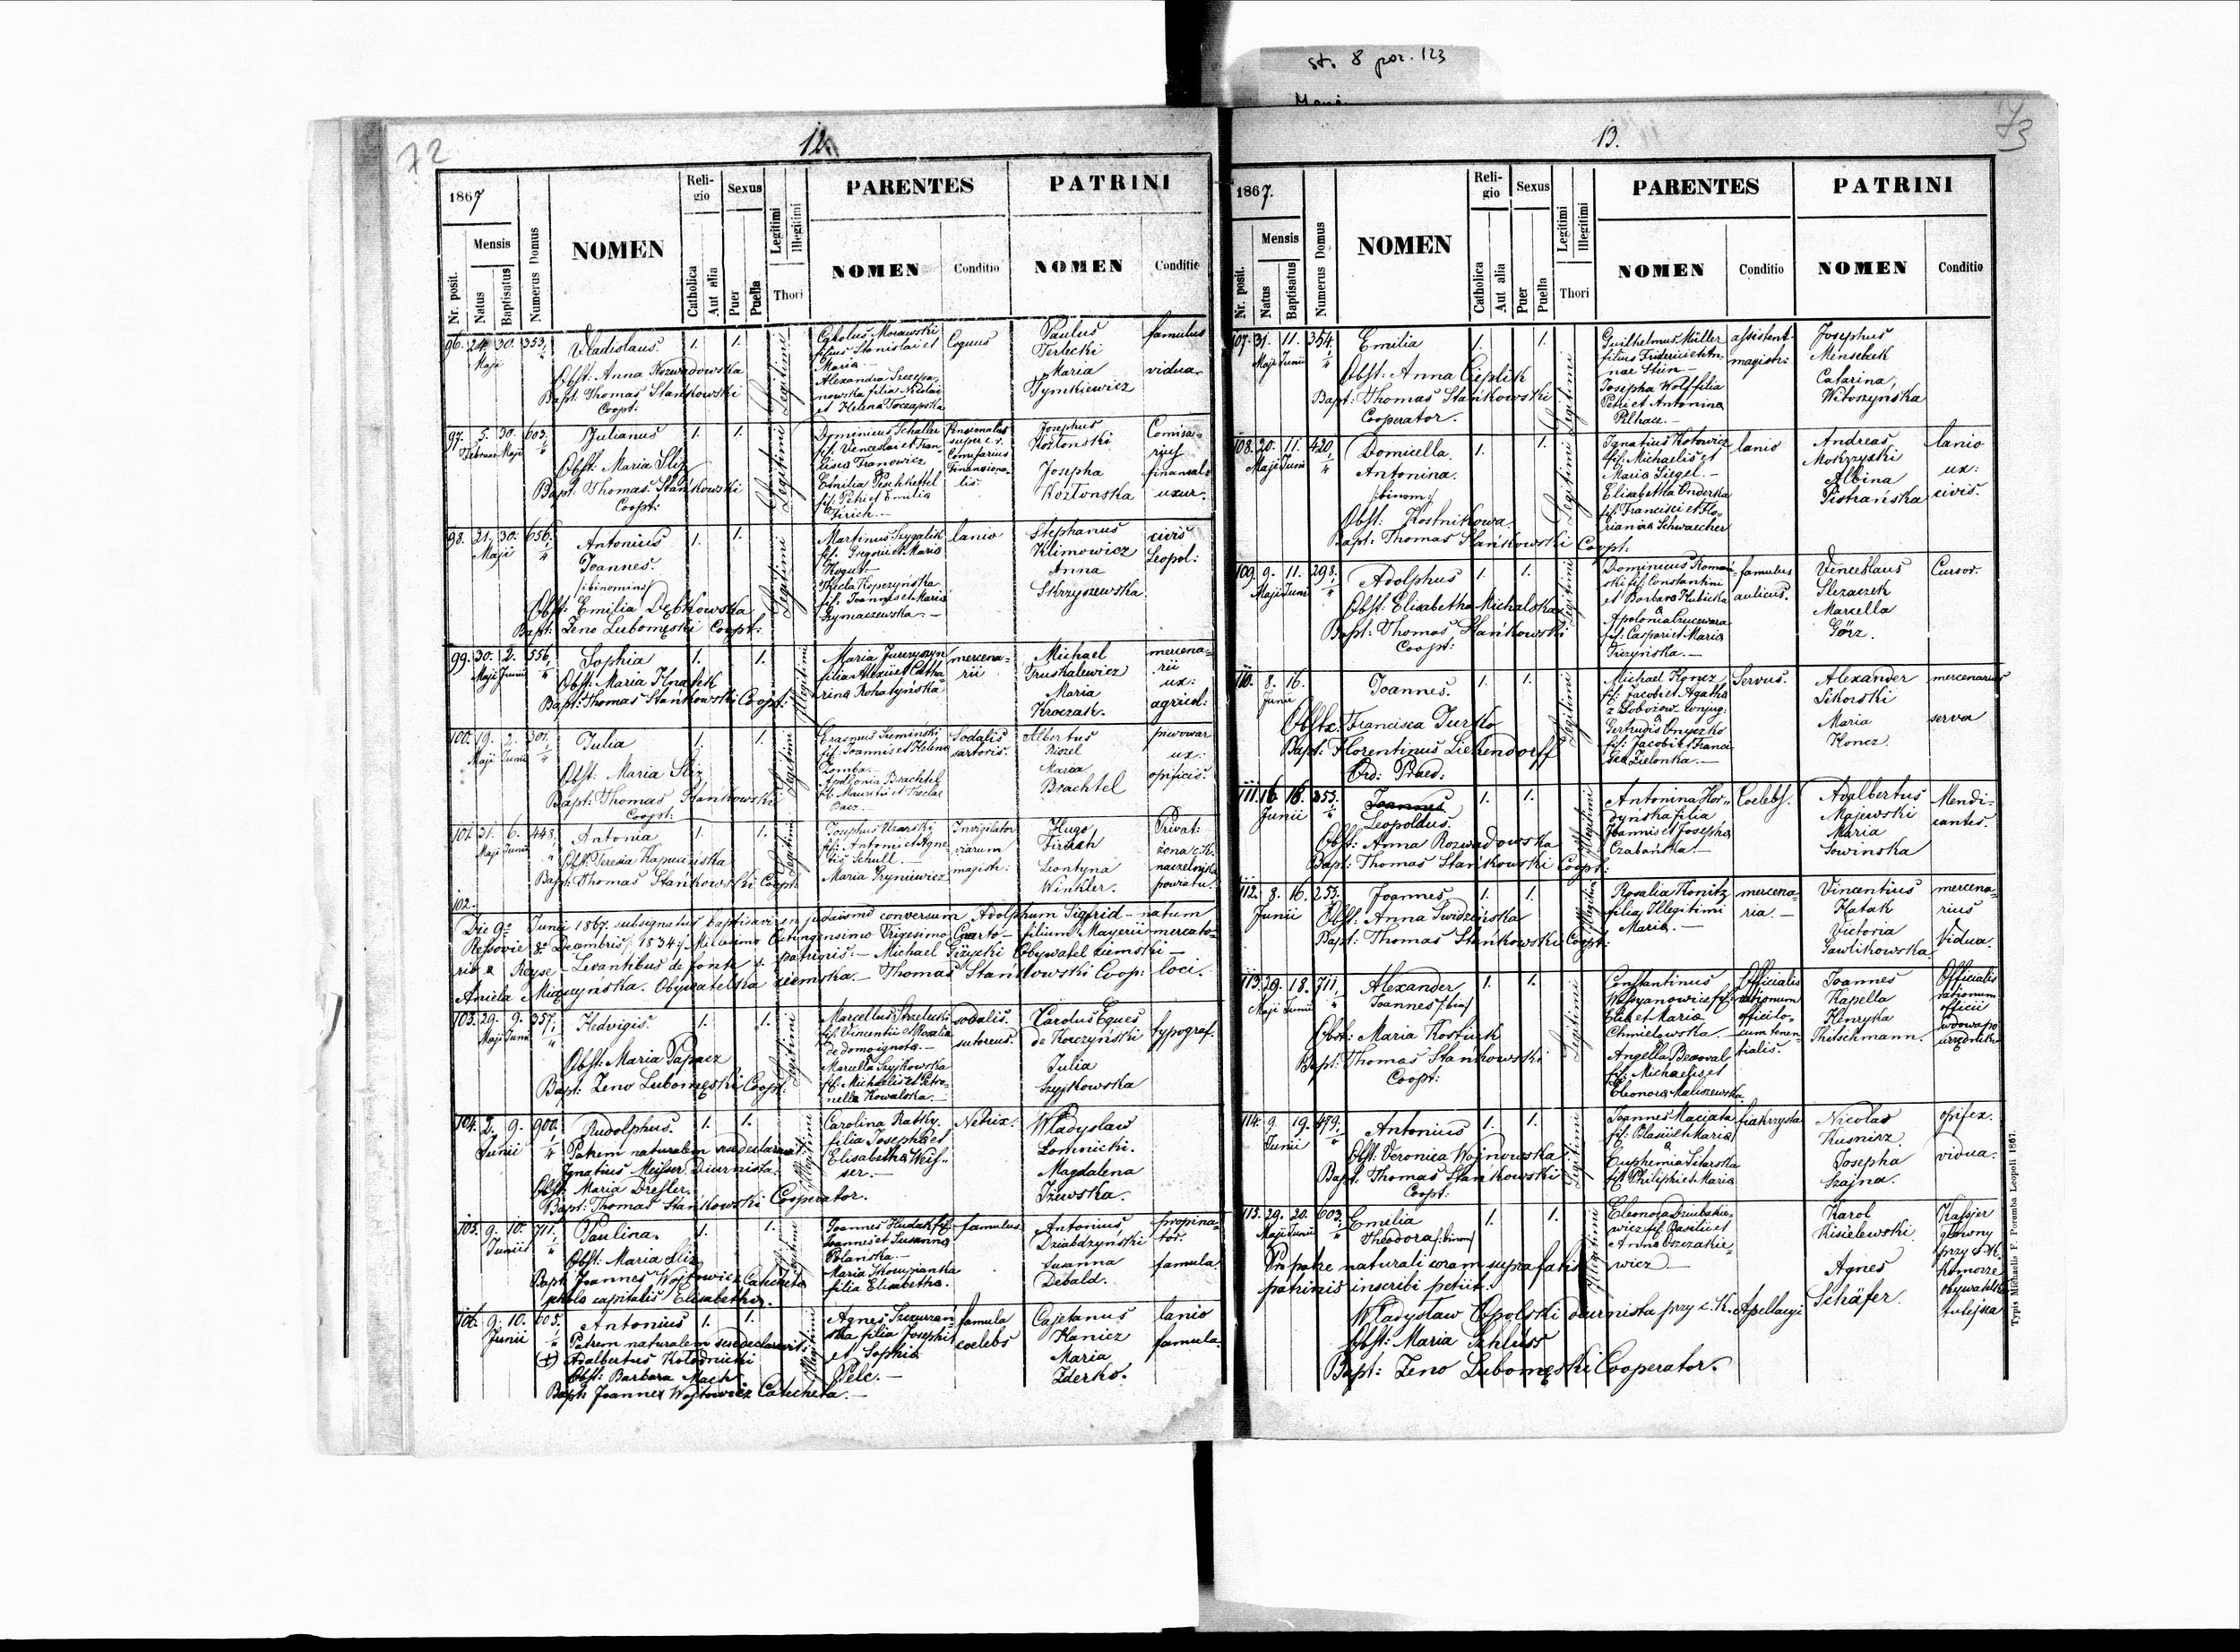 st. 8 poz. 123
72
12.
1867
Mensis
Nr. posit.
Natus
Baptisatus
Numerus Domus
NOMEN
Reli-
gio
Catholica
Aut alia
Sexus
Puer
Puella
Legitimi
Illegitimi
Thori
PARENTES
NOMEN
Conditio
PATRINI
NOMEN
Conditio
96. 24. 30. 353.
Maji
Vladislaus.
Obst: Anna Rozwadowska
Bapt: Thomas Stańkowski
Coopt:
1. 1.
Legitimi
Carolus Morawski
filius Stanislai et
Maria
Alexandra Szczepa-
nowska filia Nicolai
et Helena Toczapska
Coquus
Paulus
Terlecki
Maria
Tymkiewicz
famulus
vidua
97. 5. 30. 603.
Februar Maji
Julianus
Obst: Maria Sliz
Bapt: Thomas Stańkowski
Coopt:
1. 1.
Legitimi
Dominicus Schaller
fil. Venceslai et Fran-
cisca Franowicz
Emilia Peschkettel
fil. Petri et Emilia
Firich.
Josephus
Kozłonski
Josepha
Kozłonska
Comisa-
ryj
finansal:
uxor.
98. 21. 30. 656.
Maji
Antonius
Joannes.
/:binomins/
Obst: Emilia Dębkowska
Bapt: Zeno Lubomęski Coopt:
1. 1.
Legitimi
Martinus Szygalik
fil. Gregorii et Maria
Kogut
Thecla Kopczyńska
fil. Joannis et Maria
Szymaczewska
lanio
Stephanus
Klimowicz
Anna
Skrzyszewska
civis
Leopol:
99. 30. 2. 556.
Maji Junii
Sophia
Obst: Maria Hnatek
Bapt: Thomas Stańkowski Coopt:
1. 1.
Illegitimi
Maria Jurczyszyn
filia Alexii et Catha-
rina Rohatyńska
mercena-
rii
Michael
Truskalewicz
Maria
Kroczak.
mercena-
rii
ux:
agricol:
100. 19. 2. 301.
Maji Junii
Julia
Obst: Maria Sliz
Bapt: Thomas Stańkowski
Coopt:
1. 1.
Legitimi
Erasmus Siemiński
fil. Joannis et Helena
Zomba.
Apollonia Brachtel
fil. Mauritii et Theclae
Bacz.
Sodalis
sartoris.
Albertus
Riozel
Maria
Brachtel
piwowar
ux:
opificis.
101. 31. 6. 448.
Maji Junii
Antonia
Obst: Teresia Kapuścińska
Bapt: Thomas Stańkowski Coopt:
1. 1.
Legitimi
Josephus Uzarski
fil. Antoni et Agne-
tis Schull.
Maria Hryniewicz
Invigilator
viarum
magistr:
Hugo
Firich
Leontyna
Winkler.
Privat:
żona c.k.
naczelnika
powiatu.
102.
Die 9a Junii 1867. subsignatus baptisavi en judaismo conversum Adolphum Sigfrid natum
Ressovie 8a Decembris /:1834:/ Milesimo Octingensimo Trigesimo Cuarto filium Mayerii mercato-
ris a Reyse Levantibus de fonte s. patrinis. Michael Giżycki Obywatel ziemski
Aniela Miączynska. Obywatelka ziemska. Thomas Stańkowski Coop: loci.
103. 29. 9. 357.
Maji Junii
Hedvigis.
Obst: Maria Papacz
Bapt: Zeno Lubomęski Coopt:
1. 1.
Legitimi
Marcellus Strzelecki
fil. Vincentii et Rosalia
de domo ignota.
Marcella Szyjkowska
fil. Michaelis et Petro-
nella Kowalska.
sodalis.
sutoreus.
Carolus Eques
de Korczyński
Julia
Szyjkowska
typograf.
104. 2. 9. 900.
Junii
Rudolphus.
Patrem naturalem sese declaravit
Ignatius Meisser Diurnista.
Obst: Maria Dresler.
Bapt: Thomas Stańkowski Cooperator.
1. 1.
Illegitimi
Carolina Ratky.
filia Josepha et
Elisabetha Weis-
ser.
Netrix.
Władysław
Łomnicki.
Magdalena
Iżewska.
105. 9. 10. 711.
Junii
Paulina.
Obst: Maria Sliz
Bapt: Joannes Wojtowicz Catecheta
schola capitalis Elisabethin.
1. 1.
Legitimi
Joannes Hudak fil.
Joannes et Susanna
Polańska.
Maria Skowzianka
filia Elisabetha.
famulus
Antonius
Dziabdzyński
Susanna
Debald.
propina-
tor.
famula
106. 9. 10. 605.
Junii
Antonius
Patrem naturalem sese declaravit
(+) Adalbertus Kołodnicki
Obst: Barbara Mach
Bapt: Joannes Wojtowicz Catecheta.
1. 1.
Illegitimi
Agnes Szczurzań-
ska filia Josephi
et Sophia
Pelc.
famula
coelebs
Cajetanus
Kanicz
Maria
Zderko.
lanio
famula
73
13.
1867.
Mensis
Nr. posit.
Natus
Baptisatus
Numerus Domus
NOMEN
Reli-
gio
Catholica
Aut alia
Sexus
Puer
Puella
Legitimi
Illegitimi
Thori
PARENTES
NOMEN
Conditio
PATRINI
NOMEN
Conditio
107. 31. 11. 354.
Maji Junii
Emilia
Obst: Anna Cieplik
Bapt: Thomas Stańkowski
Cooperator.
1. 1.
Legitimi
Guilhelmus Müller
filius Friderici et An-
nae Stein
Josepha Wolf filia
Petri et Antonina
Pelhace.
assistent.
magistr:
Josephus
Mensebek
Catarina,
Witoszyńska
108. 20. 11. 420.
Maji Junii
Domicella.
Antonina.
/:binom:/
Obst: Kostnikowa.
Bapt: Thomas Stańkowski Coopt:
1. 1.
Legitimi
Ignatius Kotowicz
fil. Michaelis et
Maria Siegel.
Elisabetha Onderka
fil. Francisci et Flo-
rianna Schwaecher
lanio
Andreas
Mokrzyski
Albina
Pistrańska
lanio
ux:
civis.
109. 9. 11. 298.
Maji Junii
Adolphus
Obst: Elisabetha Michalska
Bapt: Thomas Stańkowski
Coopt:
1. 1.
Legitimi
Dominicus Roman-
ski fil. Constantini
et Barbara Kubicka
&
Apolonia Czuczwara
fil. Caspari et Maria
Ticzyńska.
famulus
aulicus.
Venceslaus
Slezaczek
Marcella
Görz.
Cursor.
110. 8. 16.
Junii
Joannes.
Obstx: Francisca Turko
Bapt: Florentinus Liekendorff
Ord: Praed:
1. 1.
Legitimi
Michael Koncz
fil. Jacobi et Agatha
a Sobożow conjug:
&
Gertrudis Onyszko
fil. Jacobi et Franci-
sca Zielonka.
Servus.
Alexander
Sikorski
Maria
Koncz
mercenarius
serva
111. 16. 16. 353.
Junii
Joannes
Leopoldus.
Obst: Anna Rozwadowska
Bapt: Thomas Stańkowski Coopt:
1. 1.
Illegitimi
Antonina Hor-
dyńska filia
Joannis et Josepha
Czabańska.
Coelebs.
Adalbertus
Majewski
Maria
Sowinska
Mendi-
cantes.
112. 8. 16. 253.
Junii
Joannes
Obst: Anna Swidzińska
Bapt: Thomas Stańkowski Coopt:
1. 1.
Illegitimi
Rosalia Konitz
filia Illegitimi
Maria.
mercena-
ria.
Vincentius
Hatak
Victoria
Gawlikowska
mercena-
rius
Vidua.
113. 29. 18. 711.
Maji Junii
Alexander
Joannes /:bin:/
Obst: Maria Kostiuk
Bapt: Thomas Stańkowski
Coopt:
1. 1.
Legitimi
Constantinus
Wassyanowicz fil.
Elia et Maria
Chmielowska.
Angella Bezoval
fil. Michaelis et
Eleonora Maliszewska
Officialis
rationum
officii lo-
cum tenen-
tialis.
Joannes
Kapella
Henryka
Thitschmann.
Officialis
rationum
officii
wdowa po
urzędniku
114. 9. 19. 479.
Junii
Antonius
Obst: Veronica Wojnowska
Bapt: Thomas Stańkowski
Coopt:
1. 1.
Legitimi
Joannes Maciata
fil. Blasii et Maria
&
Euphemia Sitarska
fil. Philippi et Maria
fiakrzysta
Nicolas
Kusnirz
Josepha
Szajna.
opifex.
vidua.
115. 29. 20. 603.
Maji Junii
Emilia
Theodora /:binom/
Pro patre naturali coram supra fatis
patrinis inscribi petiit.
Władysław Opolski diurnista przy c. K. Apellacyi
Obst: Maria Schluss
Bapt: Zeno Lubomęski Cooperator.
1. 1.
Illegitimi
Eleonora Dziubakie-
wicz fil. Basilii et
Anna Oszczakie-
wicz
Karol
Kisielewski
Agnes
Schäfer.
Kassjer
główny
przy c. K.
Komorze
obywatelka
tutejsza
Typis Michaelis F. Poremba Leopoli 1867.